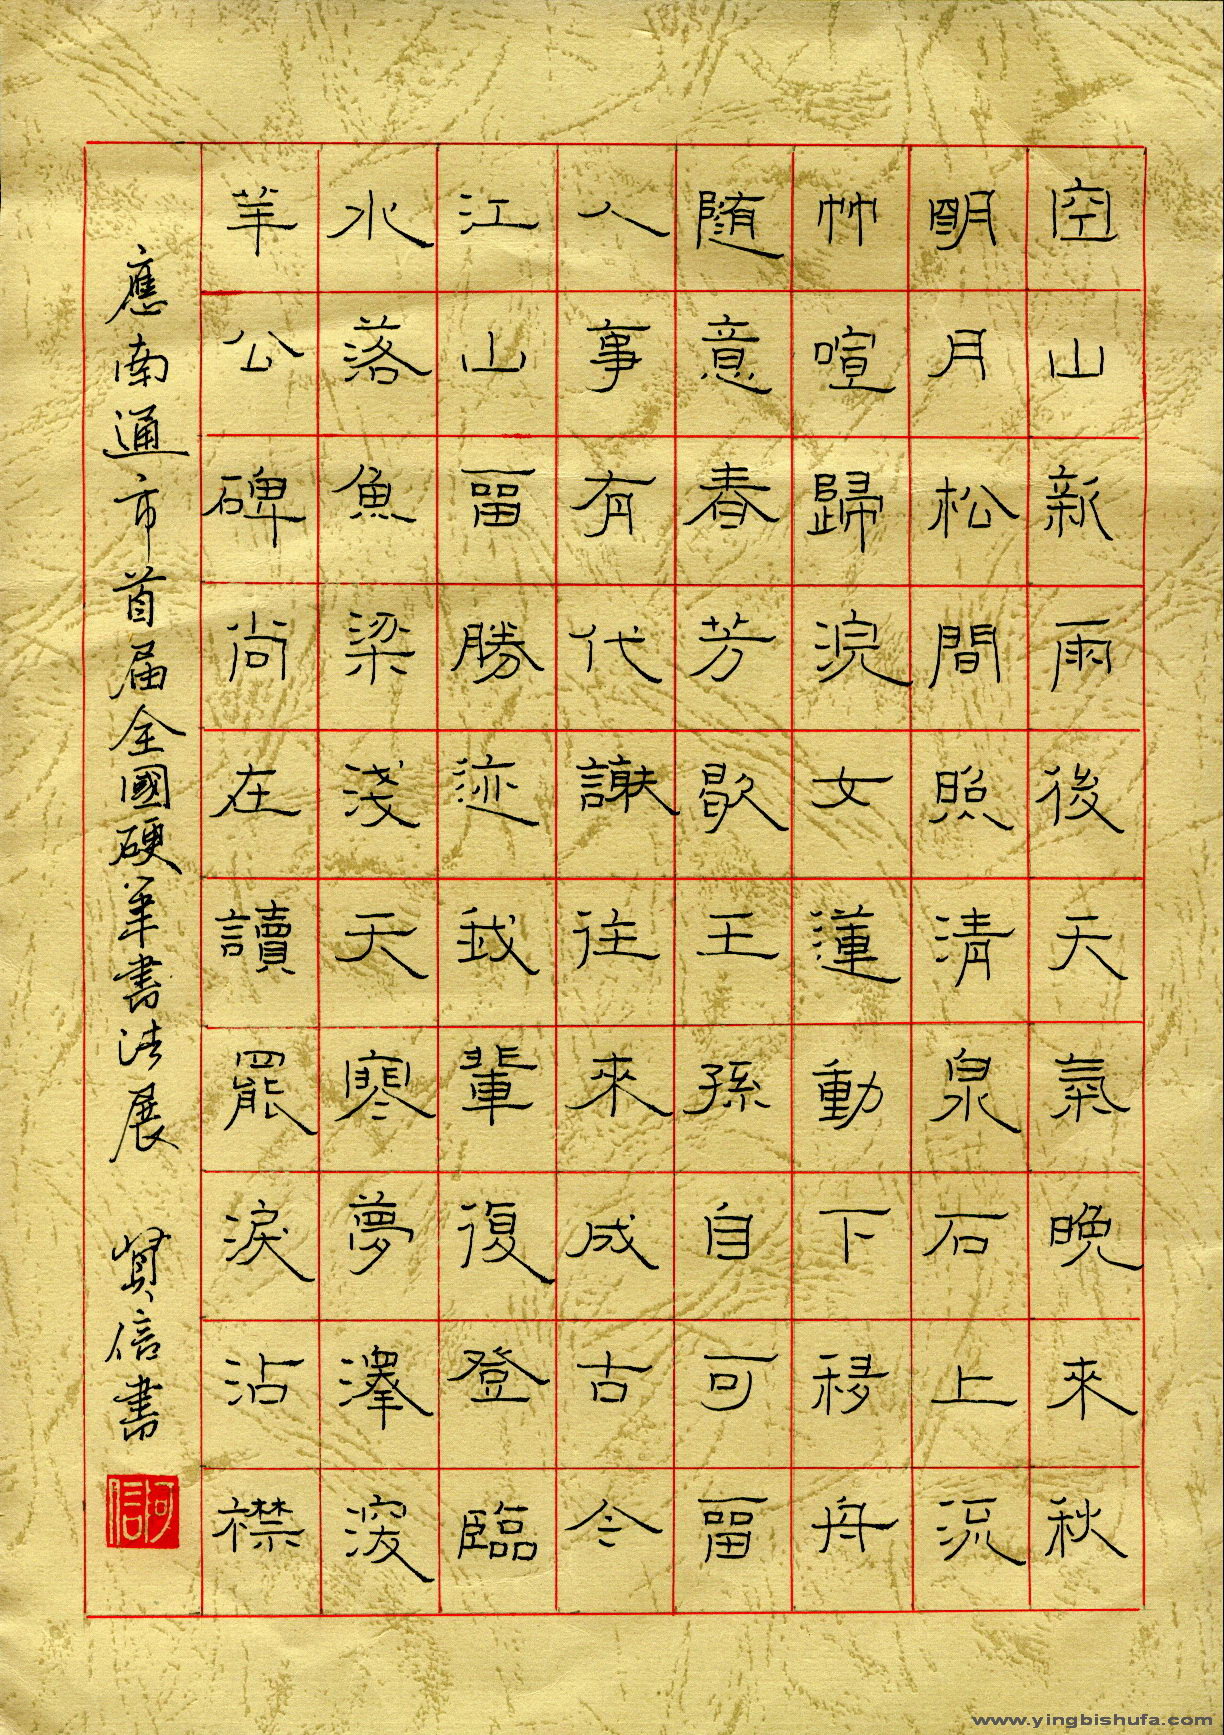 空山新雨後天氣晚來秋
明月松間照清泉石上流
竹喧歸浣女蓮動下移舟
隨意春芳歇王孫自可留
人事有代謝往來成古今
江山留勝迹我輩復登臨
水落魚梁淺天寒夢澤深
羊公碑尚在讀罷淚沾襟
應南通市首届全國硬筆書法展 賢信書
www.yingbishufa.com